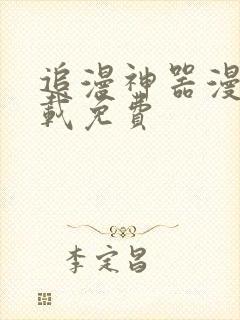 追漫神器漫
载免費
李定昌